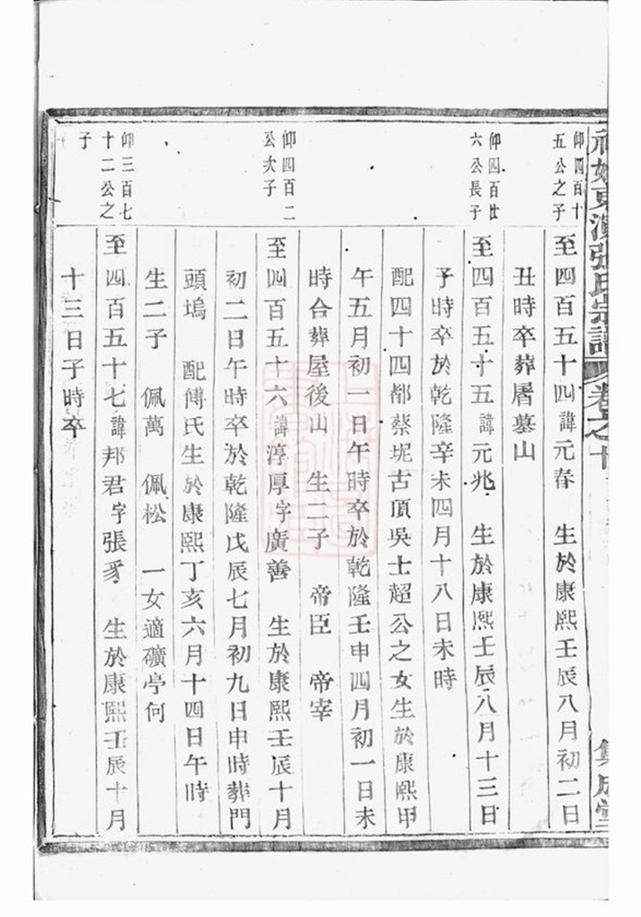 張氏宗譜
卷之十
集成堂
仰四百十
五公之子
至四百五十四諱元春　生於康熙壬辰八月初二日
丑時卒葬屠墓山
仰四百廿
六公長子
至四百五十五諱元兆　生於康熙壬辰八月十三日
子時卒於乾隆辛未四月十八日未時
配四十四都蔡坭古頂吳士超公之女生於康熙甲
午五月初一日午時卒於乾隆壬申四月初一日未
時合葬屋後山　生二子　帝臣　帝宰
仰四百二
公次子
至四百五十六諱淳厚字廣善　生於康熙壬辰十月
初二日午時卒於乾隆戊辰七月初九日申時葬門
頭塢　配傅氏生於康熙丁亥六月十四日午時
生二子　佩萬　佩松　一女適礦亭何
仰三百七
十二公之
子
至四百五十七諱邦君字張　生於康熙壬辰十月
十三日子時卒